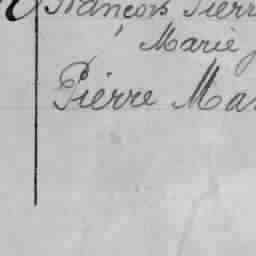 François Pierr
Marie
Pierre Mar